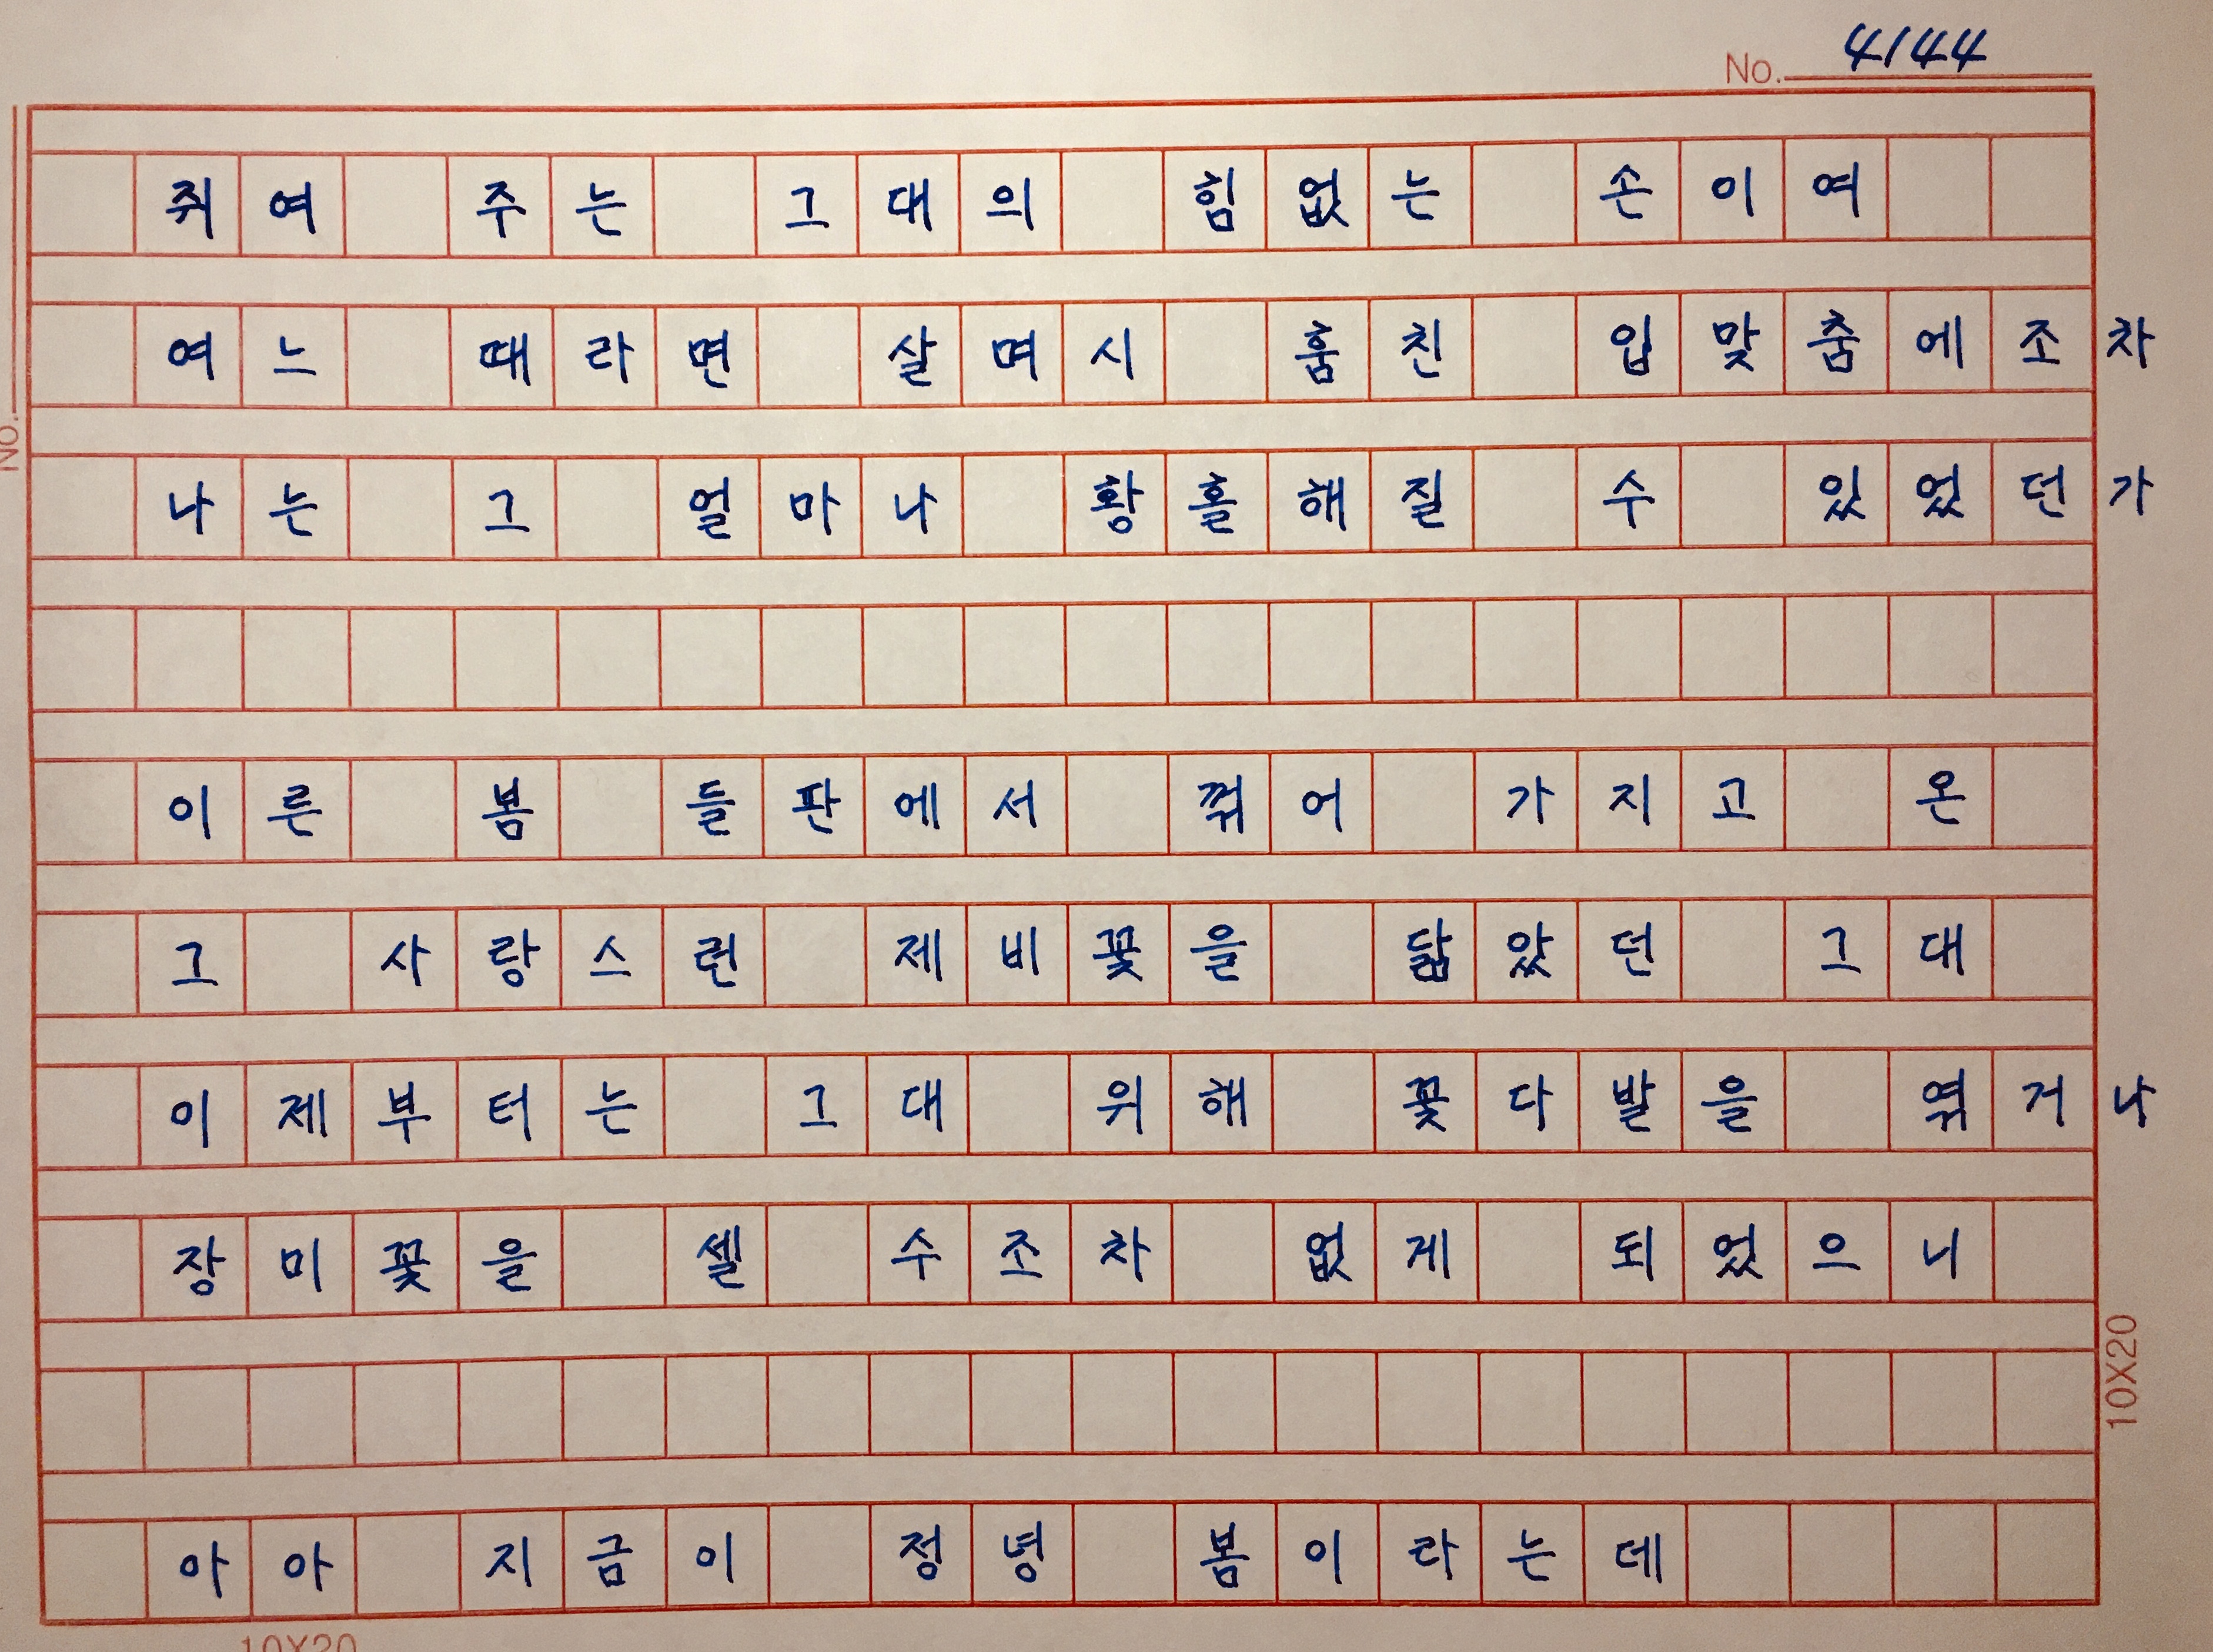 No. 4144
쥐여 주는 그대의 힘없는 손이여
여느 때라면 살며시 훔친 입맞춤에조차
나는 그 얼마나 황홀해질 수 있었던가
이른 봄 들판에서 꺾어 가지고 온
그 사랑스런 제비꽃을 닮았던 그대
이제부터는 그대 위해 꽃다발을 엮거나
장미꽃을 셀 수조차 없게 되었으니
아아 지금이 정녕 봄이라는데
10X20
No.
10X20